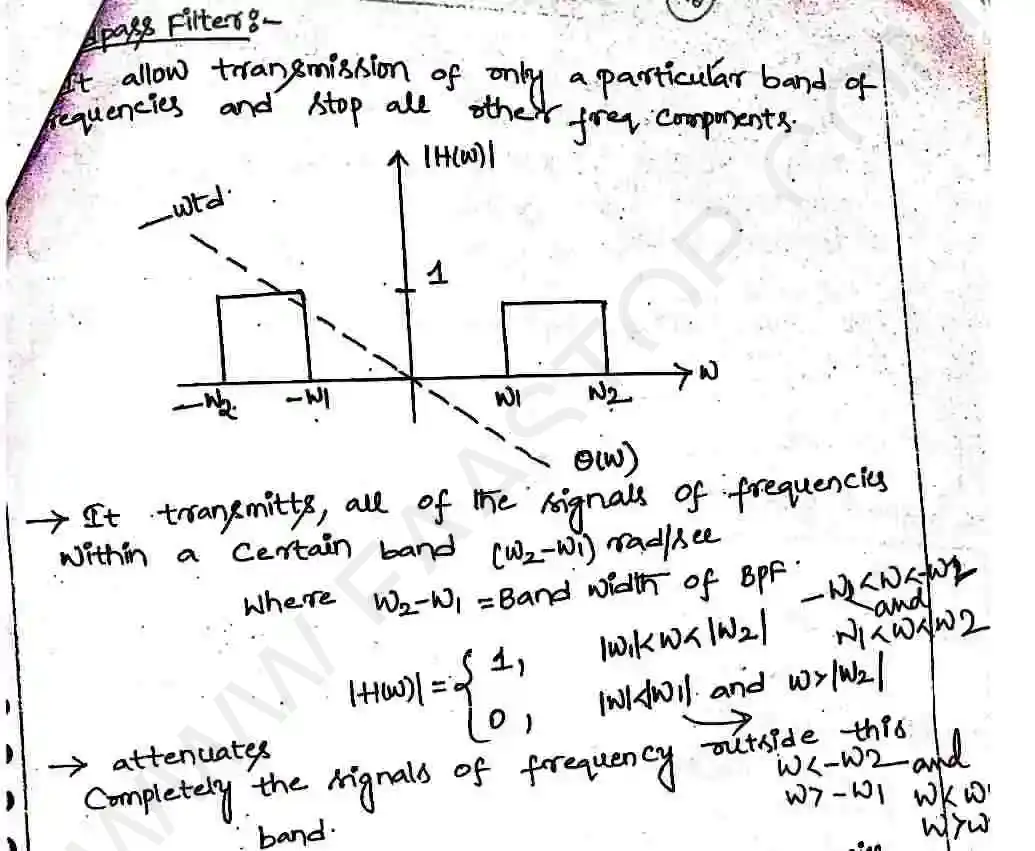 pass Filter:-
It allow transmission of only a particular band of
requencies and stop all other freq. components.
|H(w)|
-wtd
1
-W2 -W1 W1 W2 W
θ(w)
→ It transmitts, all of the signals of frequencies
within a certain band (w2-w1) rad/sec
where w2-w1 = Band width of BPF.
|H(w)| = { 1, |w1|<w<|w2|
0, |w|<|w1| and w>|w2|
and
W1<w<W2
→ attenuates
Completely the signals of frequency outside this
band.
w<-w2 and
w>-w1
WWW.FAASTOP.CO